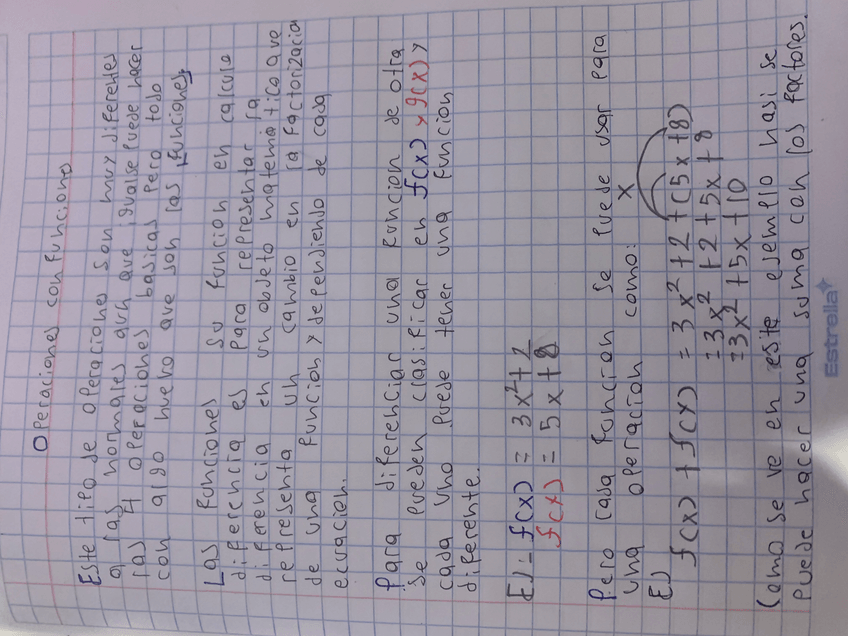 Operaciones con funciones
Este tipo de operaciones son muy diferentes
a las normales aun que igual se puede hacer
las 4 operaciones basicas pero todo
con algo nuevo que son las funciones.
Las funciones su funcion en calculo
diferencia es para representar la
diferencia en un objeto matematico que
representa un cambio en la factorizacia
de una funcion y dependiendo de cada
ecuacion.
Para diferenciar una funcion de otra
se pueden clasificar en f(x) y g(x) y
cada uno puede tener una funcion
diferente.
EJ- f(x) = 3x²+2
f(x) = 5x+8
Pero cada funcion se puede usar para
una operacion como: x
EJ
f(x) + f(x) = 3x²+2+(5x+8)
=3x²+2+5x+8
=3x²+5x+10
Como se ve en este ejemplo hasi se
puede hacer una suma con los factores.
Estrella